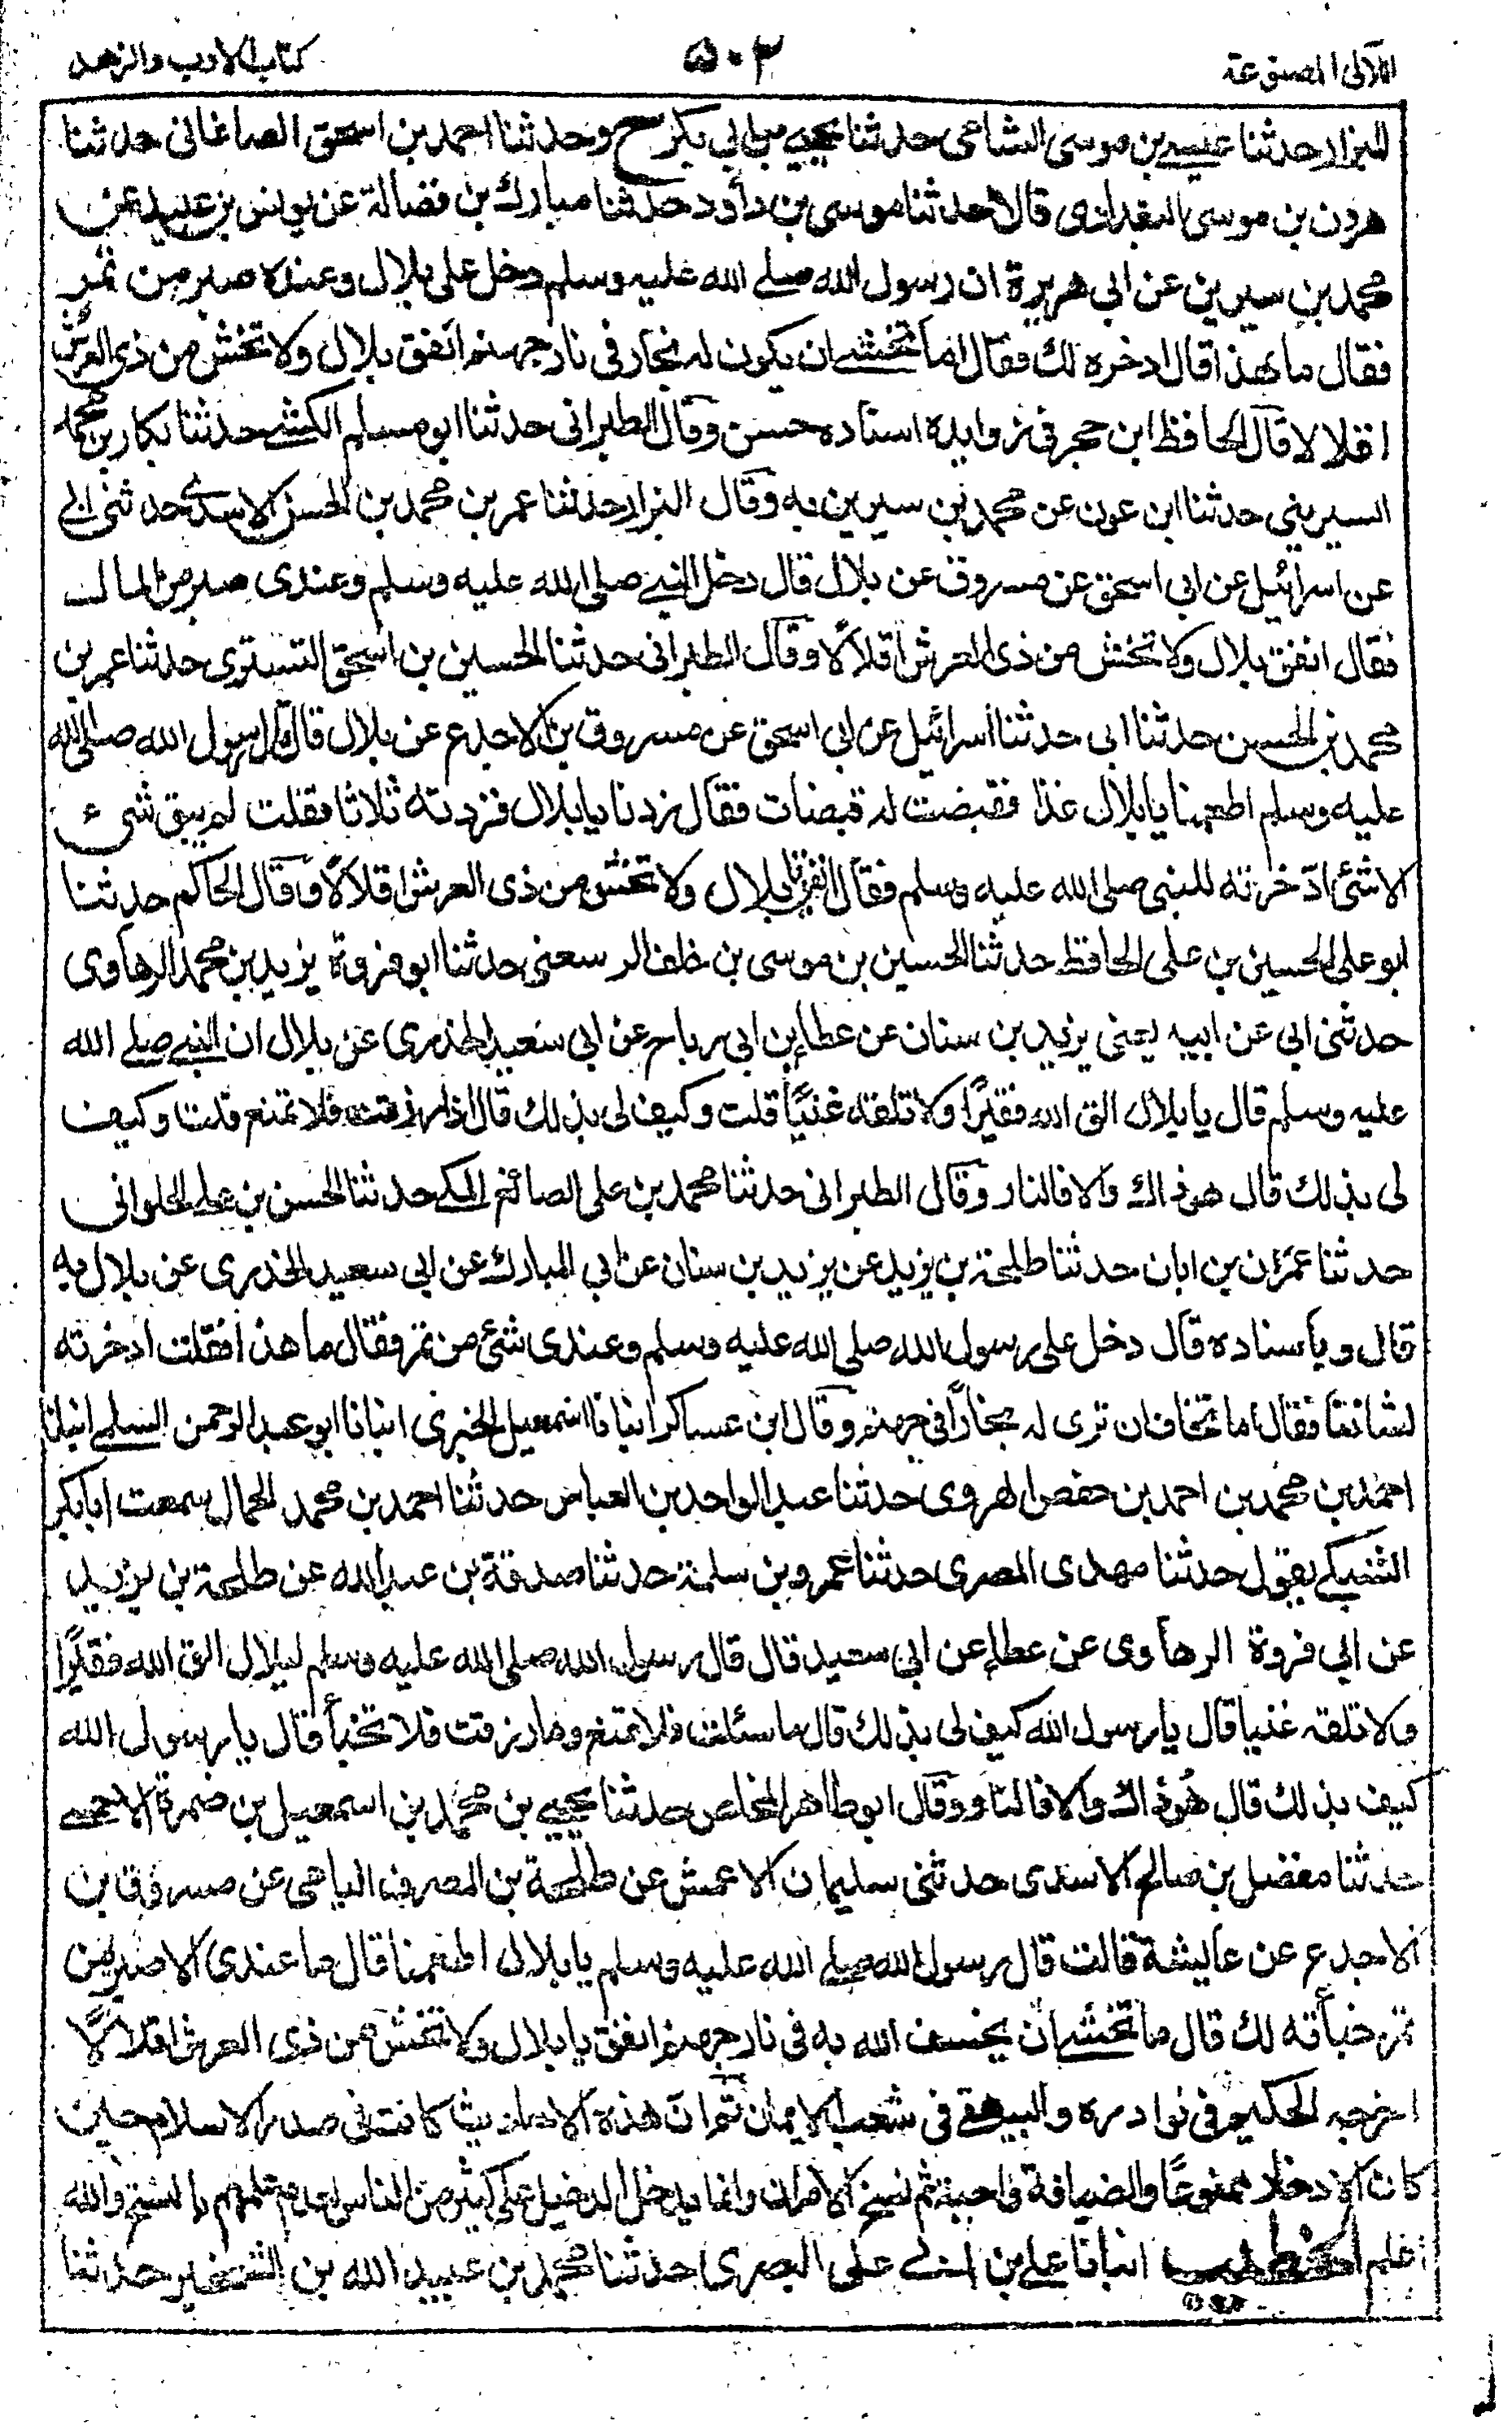 اللآلى المصنوعة
٥٠٣
كتاب الادب والزهد
البزار حدثنا عيسى بن موسى الشاعى حدثنا يحيى بن ابي بكر ح وحدثنا احمد بن اسحق الصاغانى حدثنا
هرون بن موسى البغدادى قالا حدثنا موسى بن داود حدثنا مبارك بن فضالة عن يونس بن عبيد عن
محمد بن سيرين عن ابى هريرة ان رسول الله صلى الله عليه وسلم دخل على بلال وعنده صبر من تمر
فقال ما هذا قال ادخره لك فقال اما تخشى ان يكون له بخار فى نار جهنم انفق بلال ولا تخش من ذى العرش
اقلالا قال الحافظ ابن حجر فى زوايده اسناده حسن وقال الطبرانى حدثنا ابو مسلم الكشى حدثنا بكار بن محمد
السيرينى حدثنا ابن عون عن محمد بن سيرين به وقال البزار حدثنا عمر بن محمد بن الحسن الاسدى حدثنى ابى
عن اسرائيل عن ابى اسحق عن مسروق عن بلال قال دخل النبى صلى الله عليه وسلم وعندى صبر من المال
فقال انفق بلال ولا تخش من ذى العرش اقلالا وقال الطبرانى حدثنا الحسين بن اسحق التسترى حدثنا عمر بن
محمد بن الحسن حدثنا ابى حدثنا اسرائيل عن ابى اسحق عن مسروق بن الاجدع عن بلال قال قال رسول الله صلى الله
عليه وسلم اطعمنا يا بلال غذا فقبضت له قبضات فقال زدنا يا بلال فزدته ثلاثا فقلت لم يبق شىء
الا شئ ادّخرته للنبى صلى الله عليه وسلم فقال انفق يا بلال ولا تخش من ذى العرش اقلالا وقال الحاكم حدثنا
ابو على الحسين بن على الحافظ حدثنا الحسين بن موسى بن خلف الرسعنى حدثنا ابو فروة يزيد بن محمد الرهاوى
حدثنى ابى عن ابيه يعنى يزيد بن سنان عن عطاء بن ابى رباح عن ابى سعيد الخدرى عن بلال ان النبى صلى الله
عليه وسلم قال يا بلال الق الله فقيرًا ولا تلقه غنيًا قلت وكيف لى بذلك قال اذا رزقت فلا تمنع قلت وكيف
لى بذلك قال هو ذاك والا فالنار وقال الطبرانى حدثنا محمد بن على الصائغ المكى حدثنا الحسن بن على الحلوانى
حدثنا عمران بن ابان حدثنا طلحة بن يزيد عن يزيد بن سنان عن ابى المبارك عن ابى سعيد الخدرى عن بلال به
قال وباسناده قال دخل على رسول الله صلى الله عليه وسلم وعندى شئ من تمر فقال ما هذا فقلت ادخرته
لشانئنا فقال اما تخاف ان ترى له بخارًا فى جهنم وقال ابن عساكر انبانا اسمعيل الخبرى انبانا ابو عبد الرحمن السلمى انبانا
احمد بن محمد بن احمد بن حفص الهروى حدثنا عبد الواحد بن العباس حدثنا احمد بن محمد الحمال سمعت ابا بكر
يقول حدثنا مهدى المصرى حدثنا عمرو بن سلمة حدثنا صدقة بن عبد الله عن طلحة بن يزيد
عن ابى فروة الرهاوى عن عطاء عن ابى سعيد قال قال رسول الله صلى الله عليه وسلم لبلال الق الله فقيرًا
ولا تلقه غنيا قال يا رسول الله كيف لى بذلك قال ما سئلت فلا تمنع وما رزقت فلا تخبأ قال يا رسول الله
كيف بذلك قال هو ذاك والا فالنار وقال ابو طاهر المخلص حدثنا يحيى بن محمد بن اسمعيل بن ضمرة الاحمسى
حدثنا مفضل بن صالح الاسدى حدثنى سليمان الاعمش عن طلحة بن المصرف اليامى عن مسروق بن
الاجدع عن عايشة قالت قال رسول الله صلى الله عليه وسلم يا بلال اطعمنا قال ما عندى الا صبر من
تمر خبأته لك قال ما تخشى ان يخسف الله به فى نار جهنم انفق يا بلال ولا تخش من ذى العرش اقلالًا
اخرجه الحكيم فى نوادره والبيهقى فى شعب الايمان ثم ان هذه الاحاديث كانت فى صدر الاسلام حين
كان الادخار ممنوعًا والضيافة واجبة ثم نسخ الامران وانما يدخل الدخيل على كثير من الناس لعدم علمهم بالنسخ والله
اعلم الخطيب انبانا على بن ابى على البصرى حدثنا محمد بن عبيد الله بن الشخير حدثنا